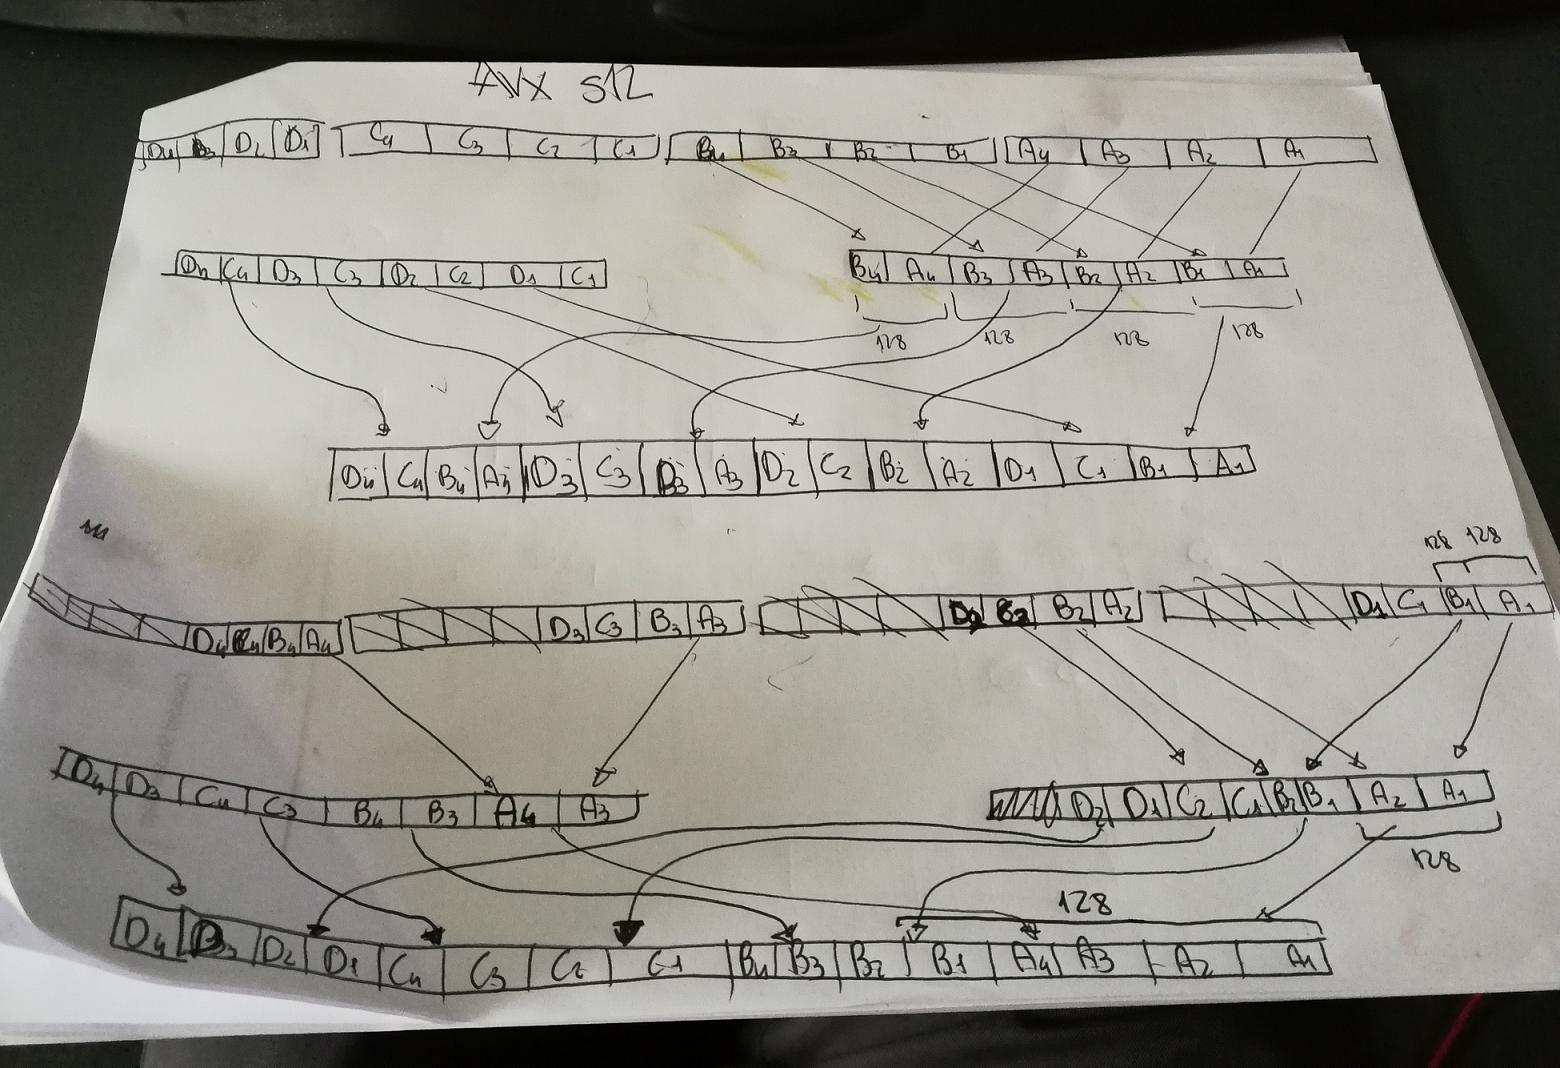 AVX 512
D4 D3 D2 D1 C4 C3 C2 C1 B4 B3 B2 B1 A4 A3 A2 A1
D4 C4 D3 C3 D2 C2 D1 C1 B4 A4 B3 A3 B2 A2 B1 A1
128 128 128 128
D4 C4 B4 A4 D3 C3 B3 A3 D2 C2 B2 A2 D1 C1 B1 A1
128 128
D4 C4 B4 A4 D3 C3 B3 A3 D2 B2 A2 D1 C1 B1 A1
D4 D3 C4 C3 B4 B3 A4 A3 D2 D1 C2 C1 B2 B1 A2 A1
128
128
D4 D3 D2 D1 C4 C3 C2 C1 B4 B3 B2 B1 A4 A3 A2 A1